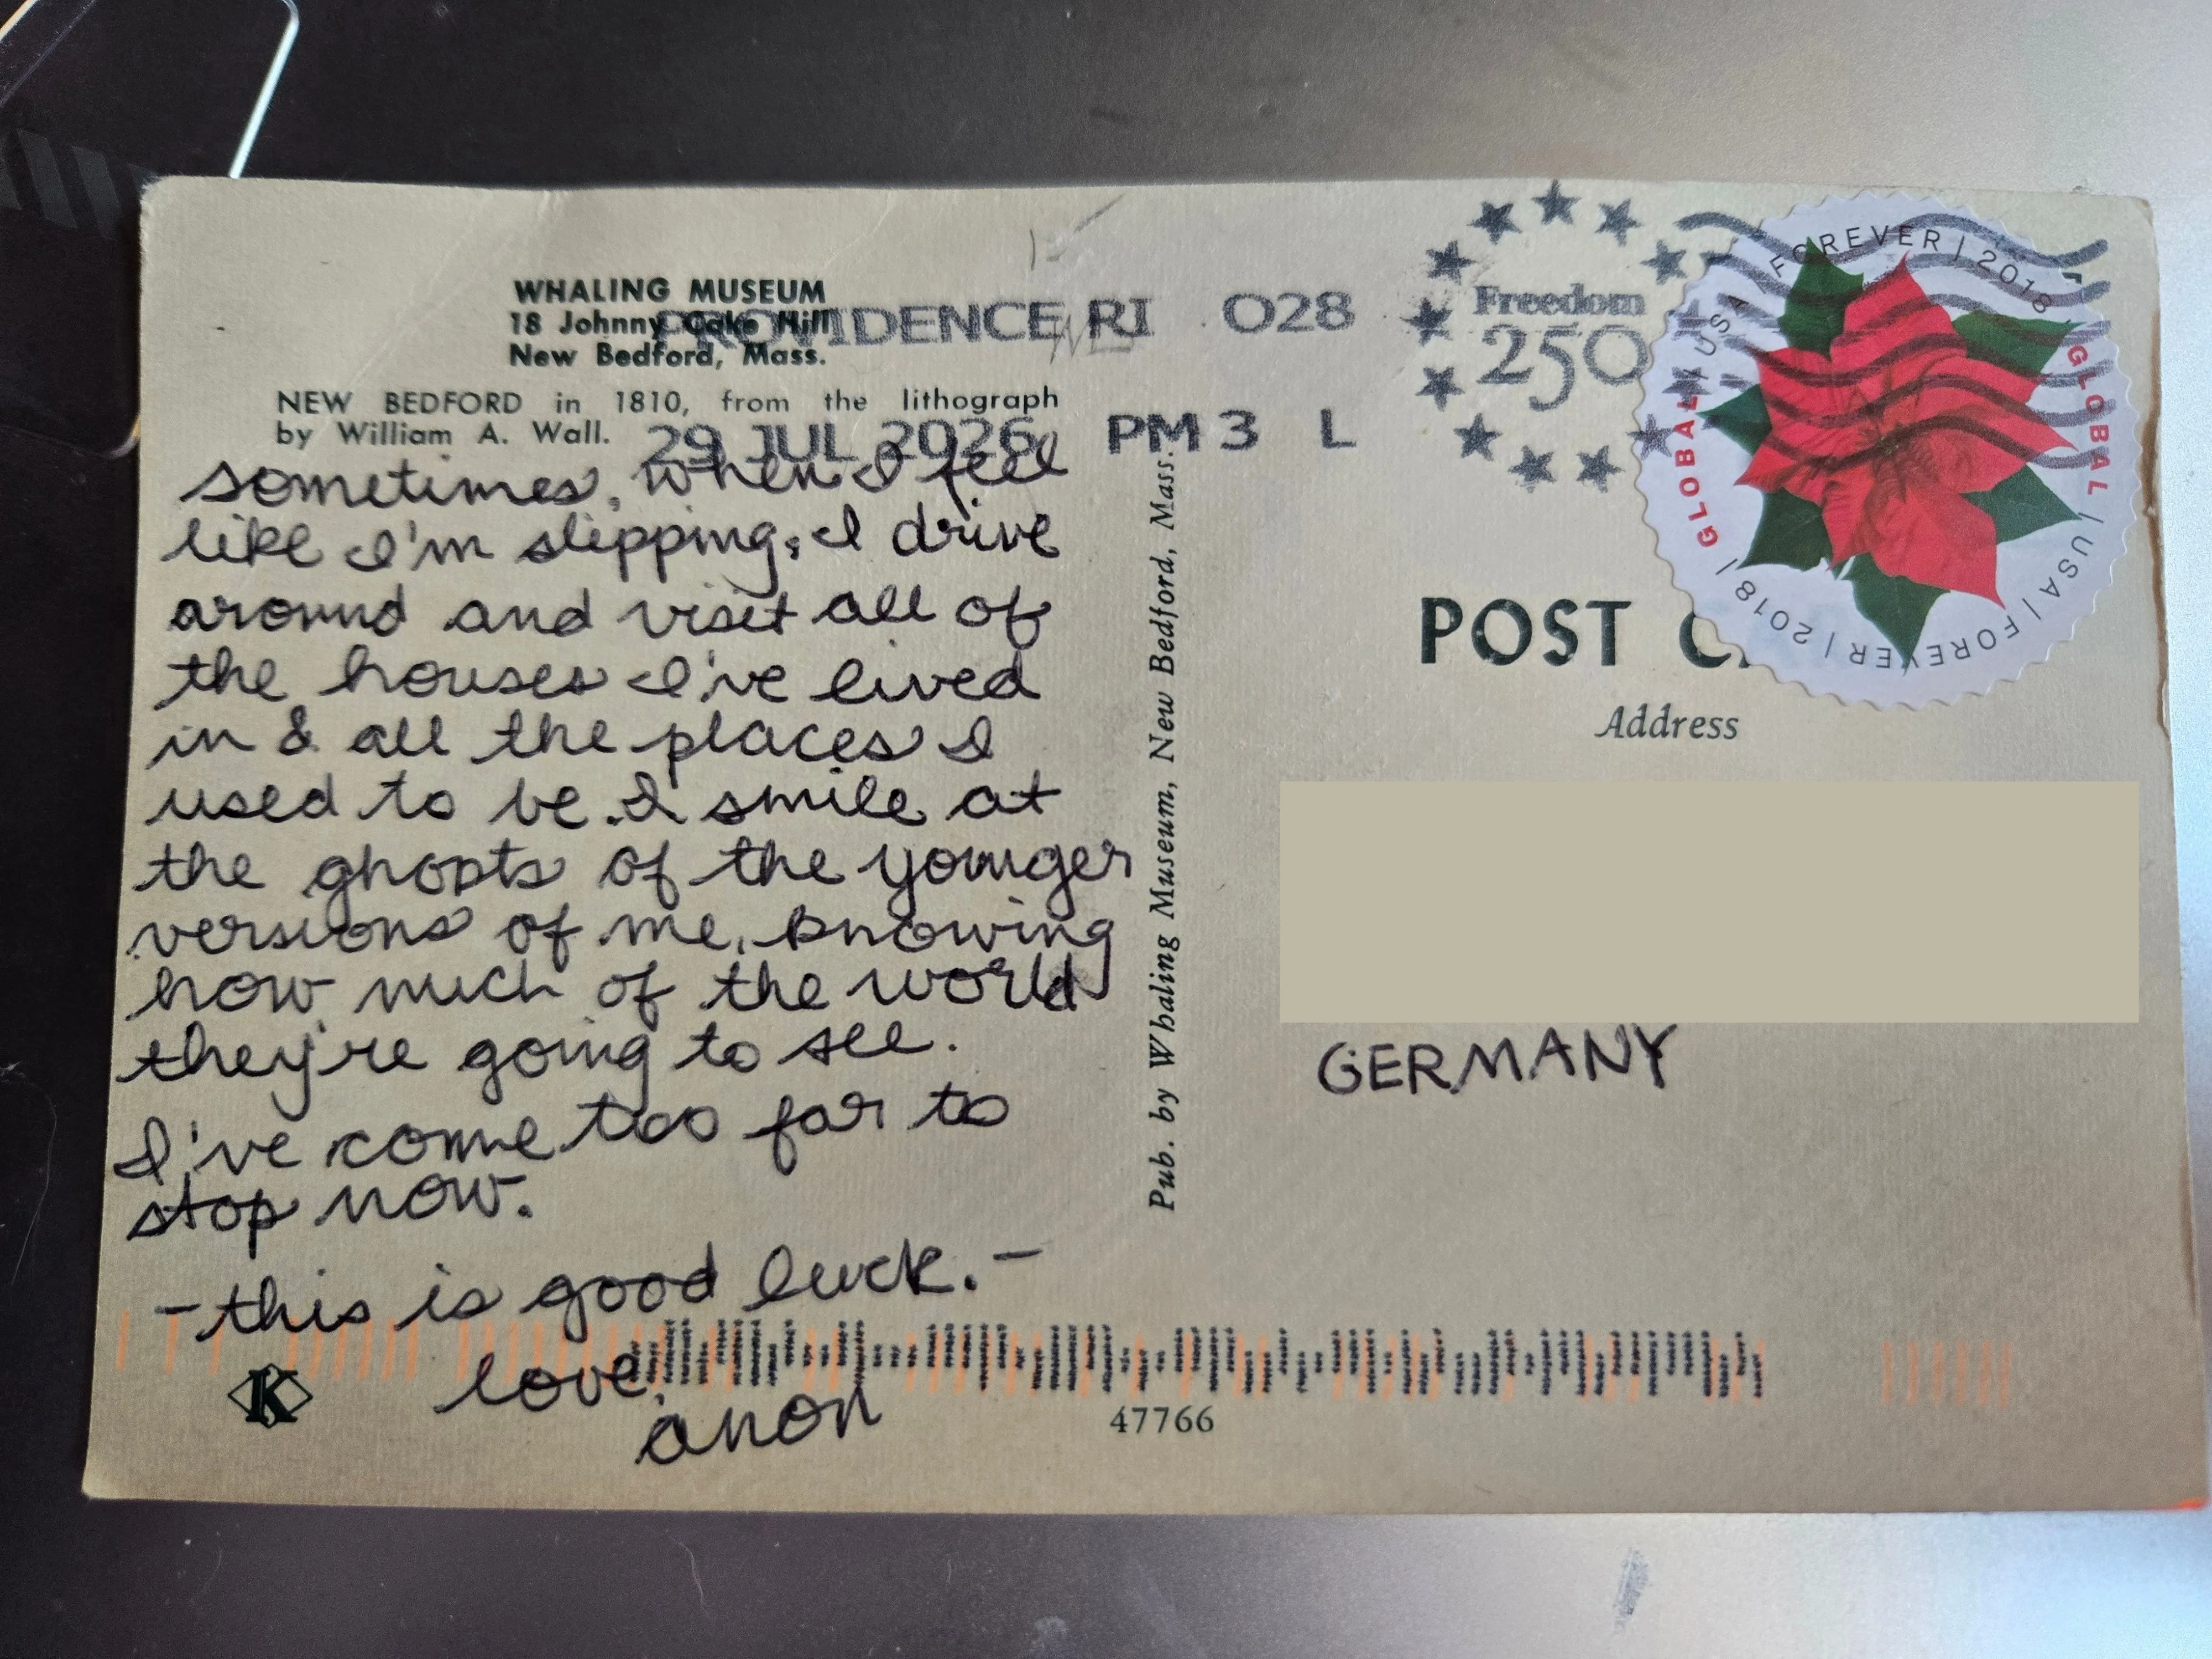 WHALING MUSEUM
18 Johnny Cake Hill
New Bedford, Mass.
NEW BEDFORD in 1810, from the lithograph
by William A. Wall.
PROVIDENCE RI 028
29 JUL 2026 PM 3 L
Freedom
250
FOREVER | 2018 | GLOBAL | USA | FOREVER | 2018 | GLOBAL | USA
sometimes, when I feel
like I'm slipping, I drive
around and visit all of
the houses I've lived
in & all the places I
used to be. I smile at
the ghosts of the younger
versions of me, knowing
how much of the world
they're going to see.
I've come too far to
stop now.
- this is good luck. -
love,
anon
K
47766
Pub. by Whaling Museum, New Bedford, Mass.
POST
Address
GERMANY